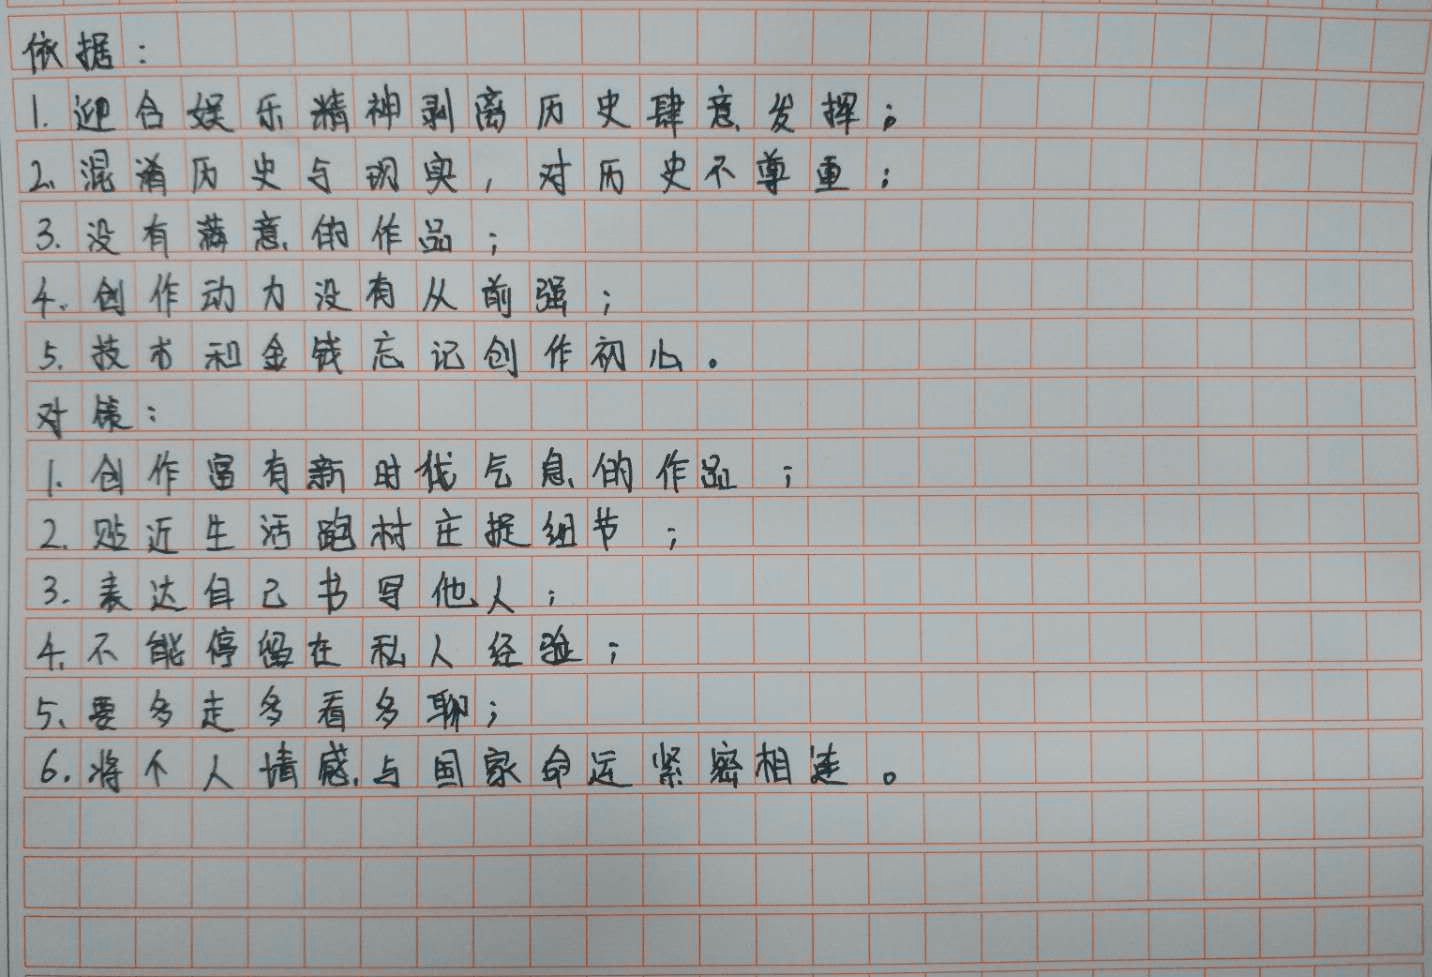 依据：
1. 迎合娱乐精神剥离历史肆意发挥；
2. 混淆历史与现实，对历史不尊重；
3. 没有满意的作品；
4. 创作动力没有从前强；
5. 技术和金钱忘记创作初心。
对策：
1. 创作富有新时代气息的作品；
2. 贴近生活跑村庄捉细节；
3. 表达自己书写他人；
4. 不能停留在私人经验；
5. 要多走多看多聊；
6. 将个人情感与国家命运紧密相连。